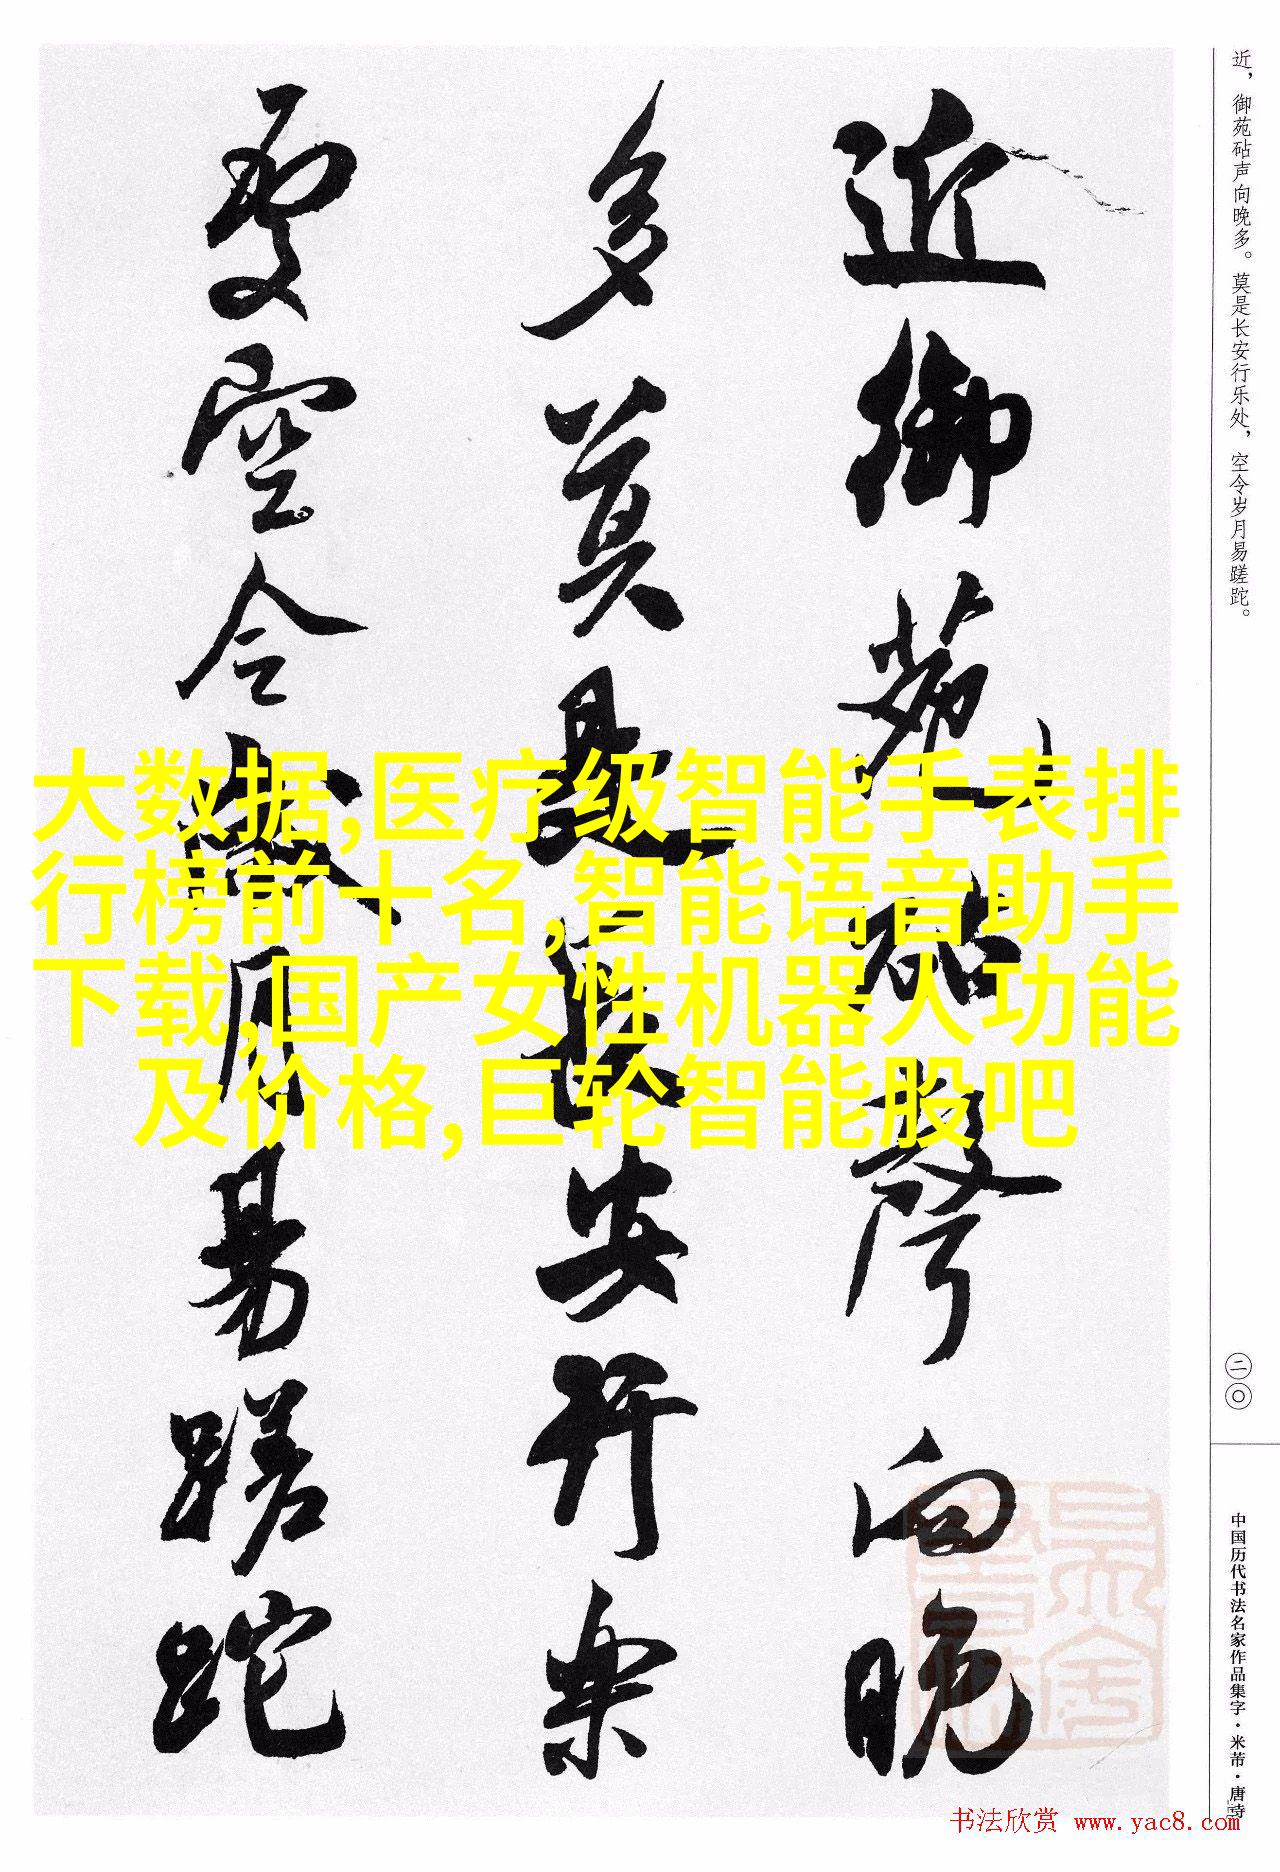 近御苑砧聲向晚
多莫是長安行樂
處空令歲月易蹉跎
近，御苑砧声向晚多。莫是长安行乐处，空令岁月易蹉跎。
二〇
中国历代书法名家作品集字·米芾·唐诗
大数据,医疗级智能手表排
行榜前十名,智能语音助手
下载,国产女性机器人功能
及价格,巨轮智能股吧
书法欣赏 www.yac8.com